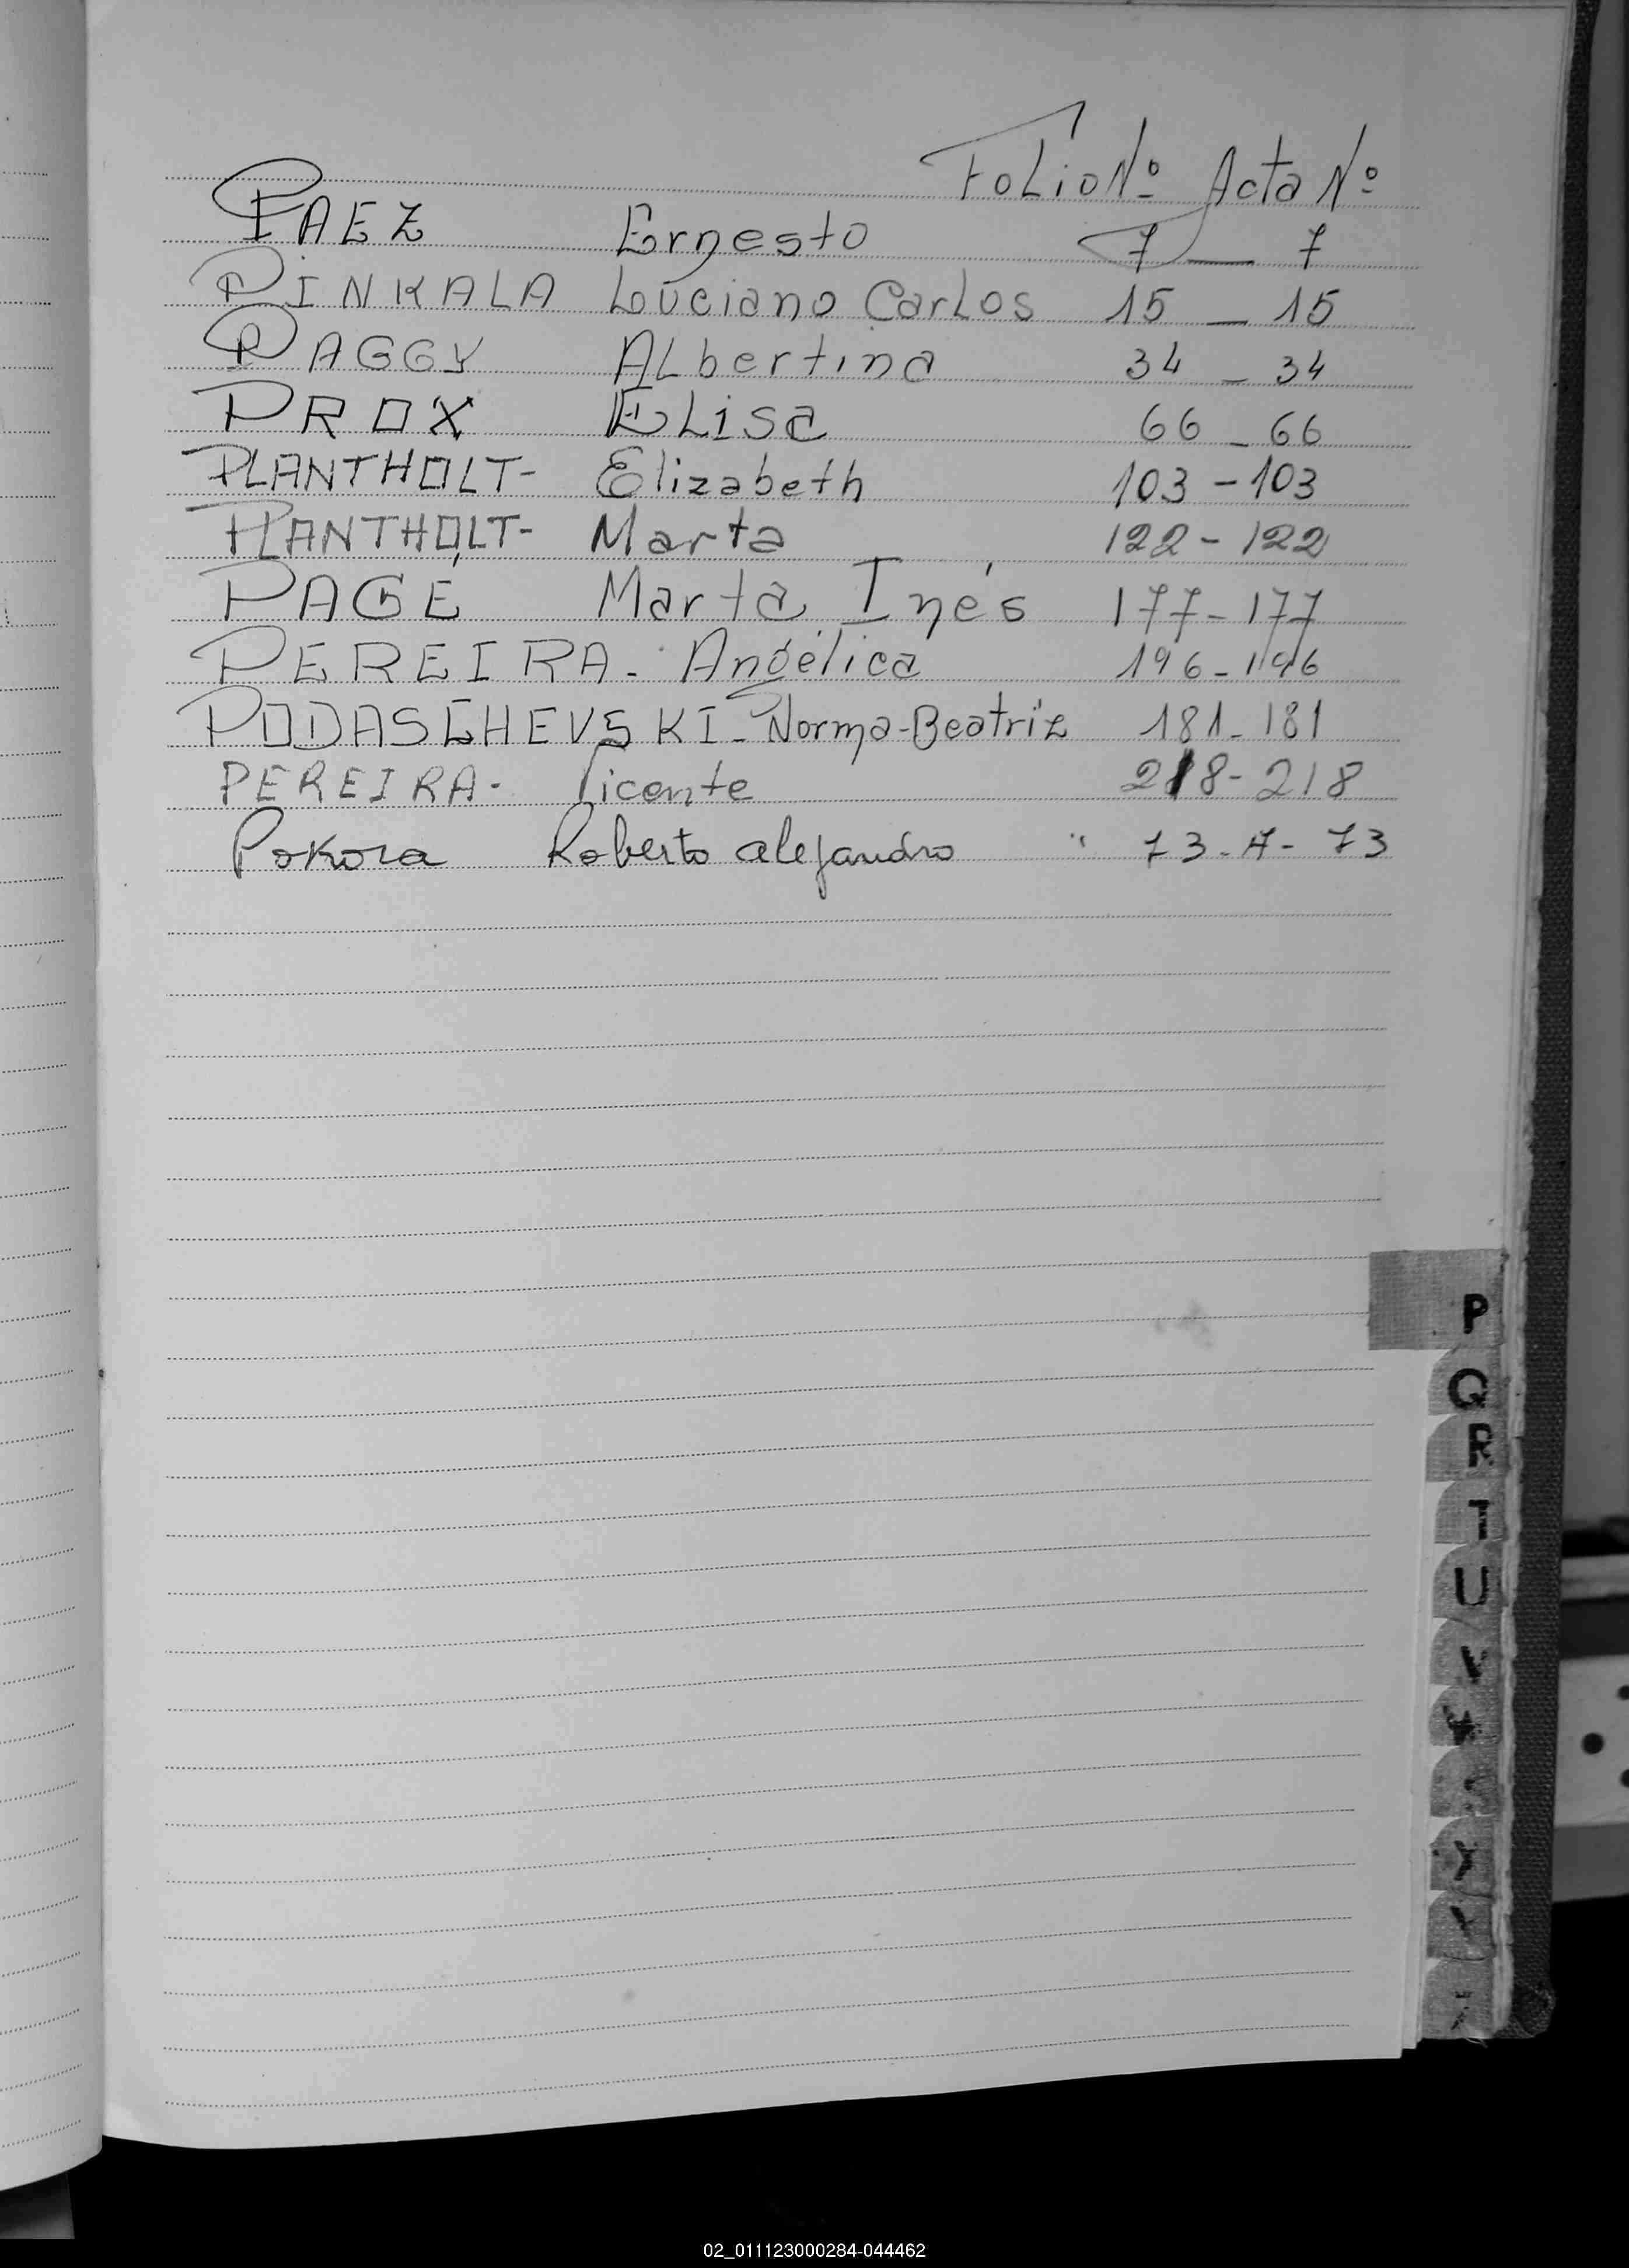 Folio Nº Acta Nº
PAEZ Ernesto 7 — 7
PINKALA Luciano Carlos 15 — 15
PAGGY Albertina 34 — 34
PROX Elisa 66 — 66
PLANTHOLT- Elizabeth 103 - 103
PLANTHOLT- Marta 122 - 122
PAGE Marta Inés 177 - 177
PEREIRA - Angélica 196 - 196
PODASCHEVSKI - Norma-Beatriz 181 - 181
PEREIRA - Vicente 218 - 218
Pokora Roberto alejandro " 73 - A - 73
P
Q
R
T
U
V
Y
02_011123000284-044462